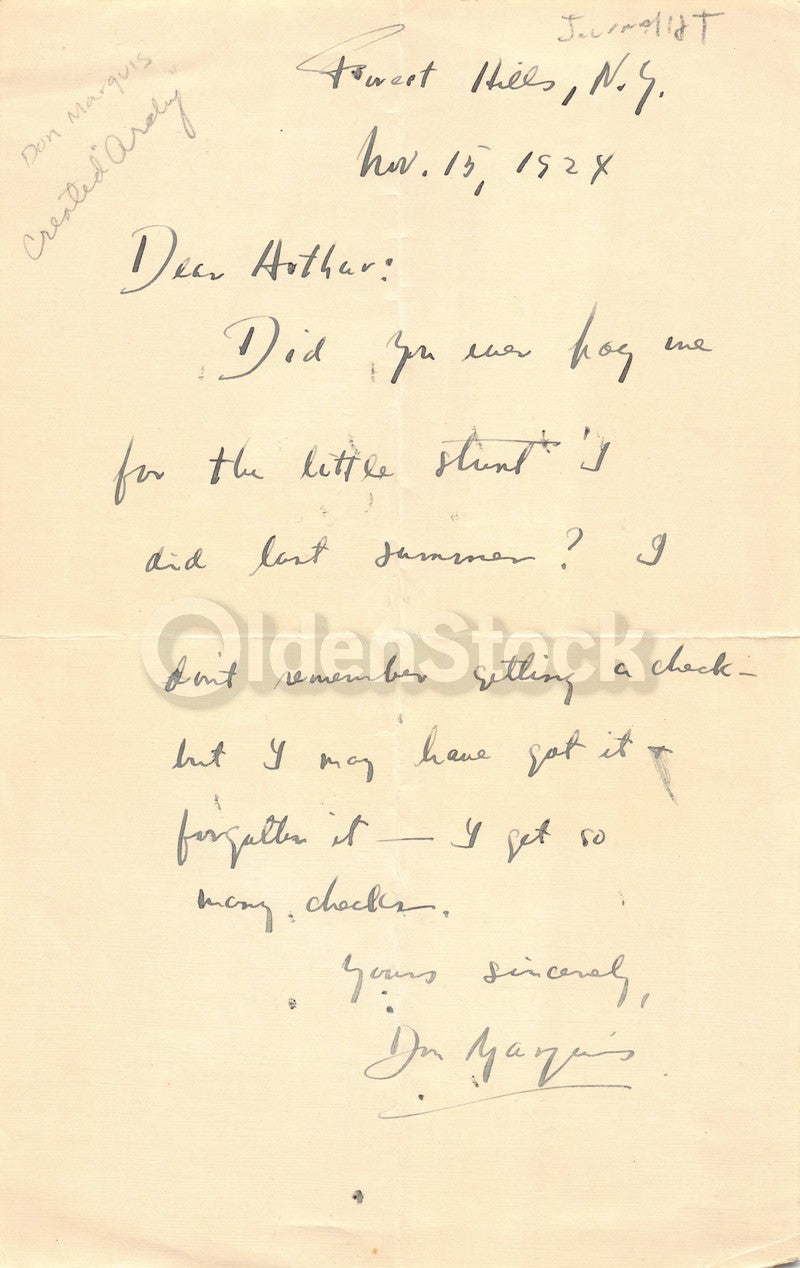 Journalist
Don Marquis
Created "Archy"
Forest Hills, N.Y.
Nov. 15, 1924
Dear Arthur:
Did you ever pay me
for the little stunt I
did last summer? I
OldenStock
don't remember getting a check—
but I may have got it +
forgotten it — I get so
many checks.
Yours sincerely,
Don Marquis